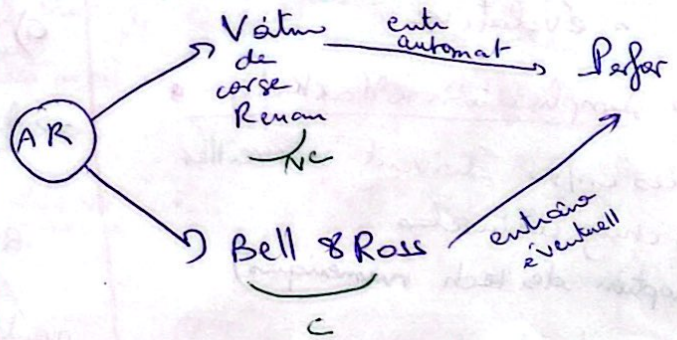 AR
Voiture
de
corse
Renau
NC
entr
automat
Perfor
Bell & Ross
C
entraîne
éventuell